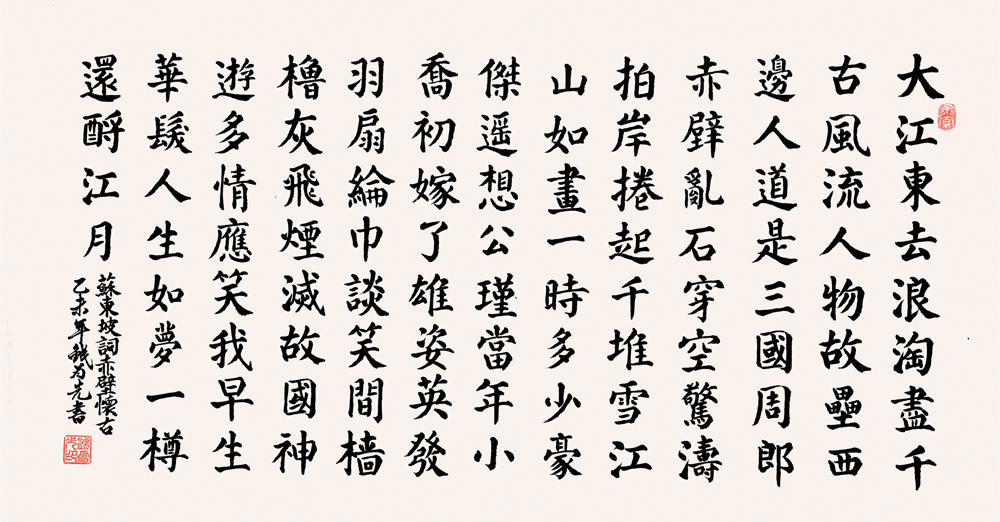 大江東去浪淘盡千
古風流人物故壘西
邊人道是三國周郎
赤壁亂石穿空驚濤
拍岸捲起千堆雪江
山如畫一時多少豪
傑遥想公瑾當年小
喬初嫁了雄姿英發
羽扇綸巾談笑間檣
櫓灰飛煙滅故國神
遊多情應笑我早生
華髮人生如夢一樽
還酹江月
蘇東坡詞赤壁懷古
乙未年書